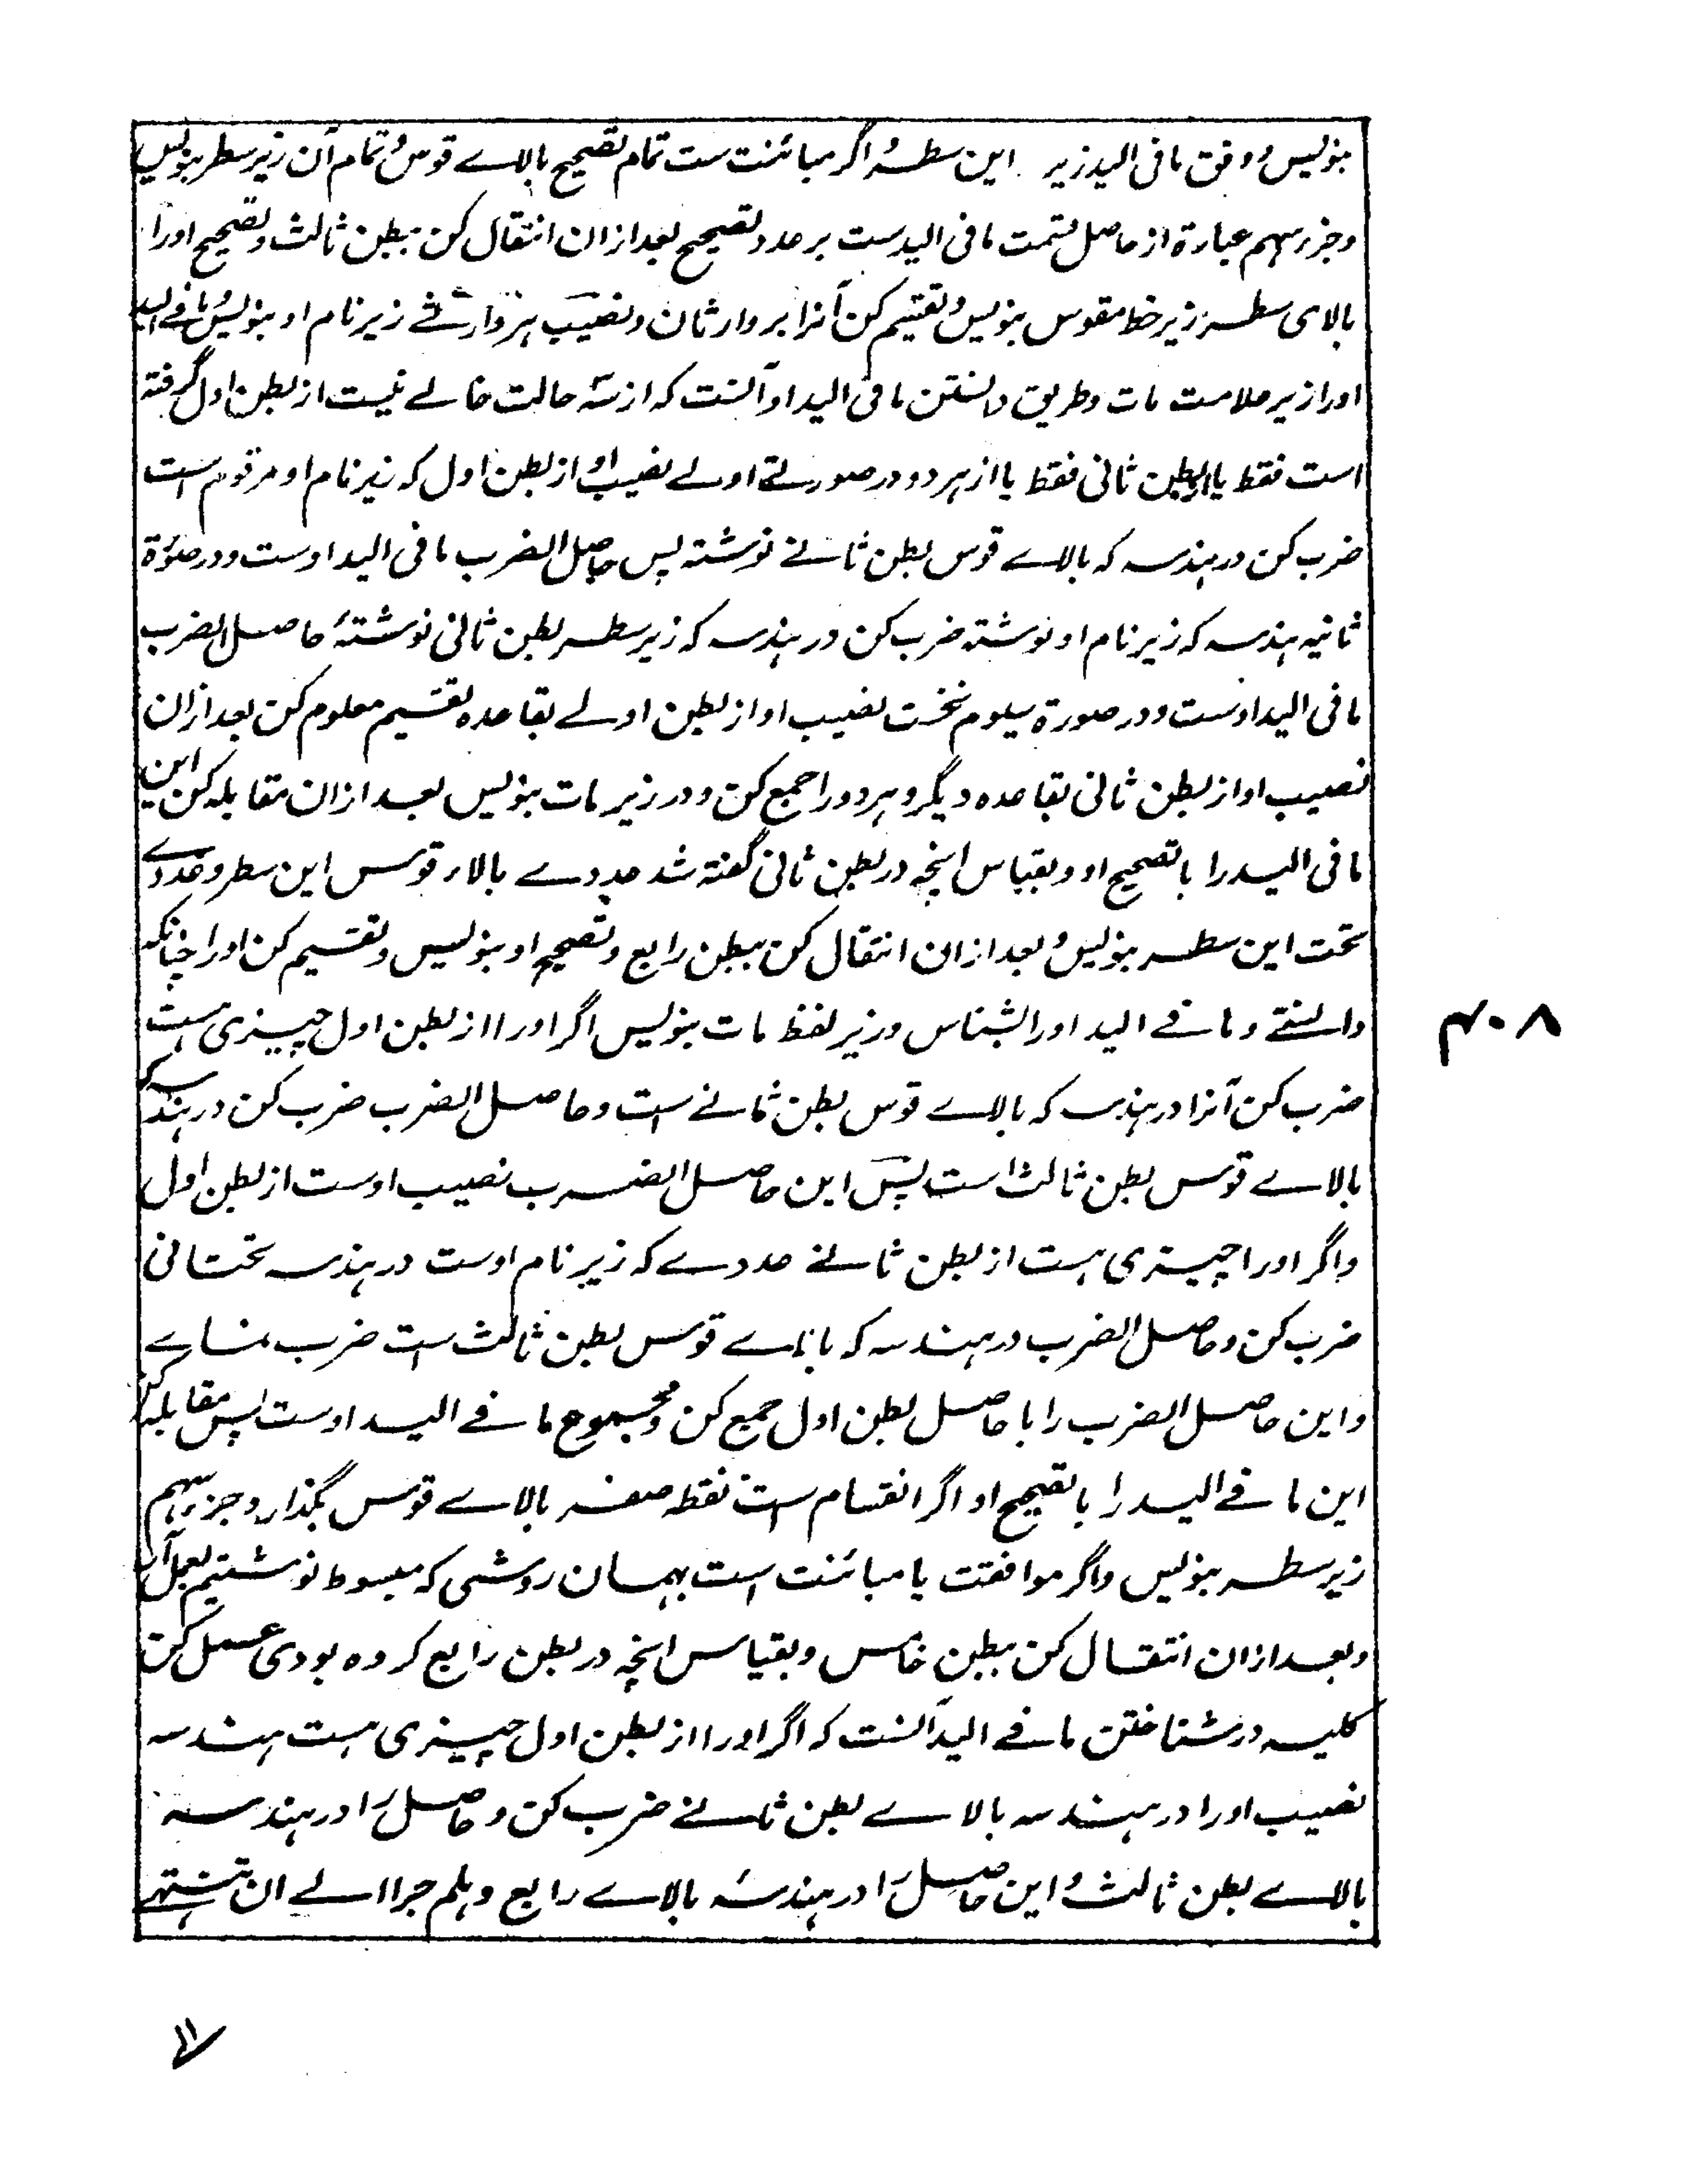 بنویس و وفق مافی الید زیر این سطر و اگر مبائنت ست تمام تصحیح بالاے قوس و تمام آن زیر سطر بنویس
و جزر سہم عبارة از حاصل قسمت مافی الیدست بر عدد تصحیح بعد ازان انتقال کن ببطن ثالث و تصحیح اورا
بالای سطر زیر خط مقوس بنویس و تقسیم کن آنرا بر وارثان و نصیب ہر وارثے زیر نام او بنویس و مافے الید
اورا زیر علامت مات و طریق دانستن مافی الید او آنست کہ از سہ حالت خالے نیست از بطن اول گرفتہ
است فقط یا از بطن ثانی فقط یا از ہر دو در صورتے اولے نصیب او از بطن اول کہ زیر نام او مرقوم است
ضرب کن در ہندسہ کہ بالاے قوس بطن ثانے نوشتہ پس حاصل الضرب مافی الید اوست و در صورة
ثانیہ ہندسہ کہ زیر نام او نوشتہ ضرب کن در ہندسہ کہ زیر سطر بطن ثانی نوشتہ حاصل الضرب
مافی الید اوست و در صورة سیوم نخست نصیب او از بطن اولے بقاعدہ تقسیم معلوم کن بعد ازان
نصیب او از بطن ثانی بقاعدہ دیگر و ہر دو را جمع کن و در زیر مات بنویس بعد ازان مقابلہ کن این
مافی الید را با تصحیح او و بقیاس انچہ در بطن ثانی گفتہ شد عددے بالاء قوس این سطر و عددے
تحت این سطر بنویس و بعد ازان انتقال کن ببطن رابع و تصحیح او بنویس و تقسیم کن اورا چنانکہ
دانستے و مافے الید اورا بشناس و زیر لفظ مات بنویس اگر اورا از بطن اول چیزی ہست
ضرب کن آنرا در ہندسہ کہ بالاے قوس بطن ثانے ست و حاصل الضرب ضرب کن در ہندسہ کہ
بالاے قوس بطن ثالث است پس این حاصل الضرب نصیب اوست از بطن اول
و اگر اورا چیزی ہست از بطن ثانے عددے کہ زیر نام اوست در ہندسہ تحتانی
ضرب کن و حاصل الضرب در ہندسہ کہ بالاے قوس بطن ثالث ست ضرب نماے
و این حاصل الضرب را با حاصل بطن اول جمع کن و مجموع مافے الید اوست پس مقابلہ کن
این مافے الید را با تصحیح او اگر انقسام ست نقطہ صفر بالاے قوس بگذار و جزر سہم
زیر سطر بنویس و اگر موافقت یا مبائنت است بہمان روشی کہ مبسوط نوشتیم بعمل آر
و بعد ازان انتقال کن ببطن خامس و بقیاس انچہ در بطن رابع کردہ بودی عمل کن
کلیہ در شناختن مافے الید آنست کہ اگر اورا از بطن اول چیزی ہست ہندسہ
نصیب اورا در ہندسہ بالاے بطن ثانے ضرب کن و حاصل را در ہندسہ
بالاے بطن ثالث و این حاصل را در ہندسہ بالاے رابع و ہلم جرا الے ان تنتہے
۴۰۸